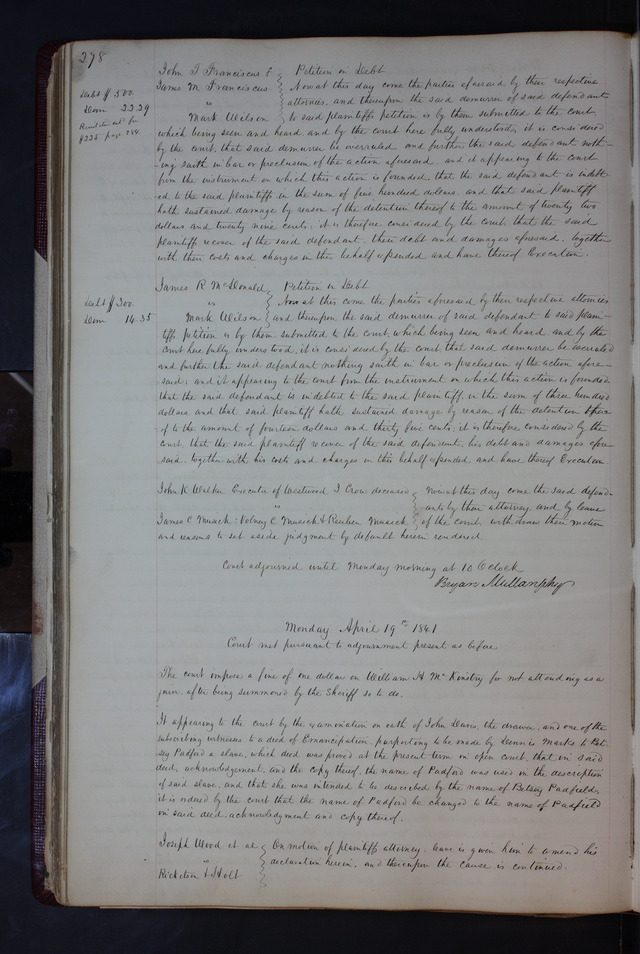 298
John T Franciscus &
James M Franciscus
vs
Mark Wilson
Petition in Debt
Debt $500.
Dam 22.29
Now at this day come the parties aforesaid by their respective
attornies, and thereupon the said demurrer of said defendant
to said plaintiffs petition is by them submitted to the court,
which being seen and heard and by the court here fully understood, it is considered
by the court, that said demurrer be overruled, and further the said defendant noth-
ing saith in bar or preclusion of the action aforesaid, and it appearing to the court
from the instrument on which this action is founded, that the said defendant is indebt-
ed to the said plaintiff in the sum of five hundred dollars, and that said plaintiff
hath sustained damage by reason of the detention thereof to the amount of twenty two
dollars and twenty nine cents, it is therefore considered by the court that the said
plaintiffs recover of the said defendant, their debt and damages aforesaid, together
with their costs and charges in this behalf expended, and have thereof Execution.
James R McDonald
vs
Mark Wilson
Petition in Debt
Debt $300.
Dam 14.35
Now at this come the parties aforesaid by their respective attornies
and thereupon the said demurrer of said defendant to said plain-
tiffs petition is by them submitted to the court, which being seen and heard and by the
court here fully understood, it is considered by the court, that said demurrer be overruled
and further the said defendant nothing saith in bar or preclusion of the action afore-
said, and it appearing to the court from the instrument on which this action is founded
that the said defendant is indebted to the said plaintiff in the sum of three hundred
dollars, and that said plaintiff hath sustained damage by reason of the detention there
of to the amount of fourteen dollars and thirty five cents, it is therefore considered by the
court, that the said plaintiff recover of the said defendant, his debt and damages afore
said, together with his costs and charges in this behalf expended, and have thereof Execution
John K Walker Executor of Westwood T Crow deceased
vs
James C Musick, Volney C Musick & Reuben Musick
Now at this day come the said defend-
ants by their attorney and by leave
of the court, withdraw their motion
and reasons to set aside judgment by default herein rendered
Court adjourned until Monday morning at 10 OClock
Bryan Mullanphy
Monday April 19th 1841
Court met pursuant to adjournment present as before
The court impose a fine of one dollar on William H McKinstry for not attending as a
juror, after being summoned by the Sheriff so to do.
It appearing to the court by the examination on oath of John Davis, the drawer, and one of the
subscribing witnesses to a deed of Emancipation, purporting to be made by Dennis Marks to Bet-
sey Padford a slave, which deed was proved at the present term in open court, that in said
deed, acknowledgement, and the copy thereof, the name of Padford was used in the description
of said slave, and that she was intended to be described by the name of Betsey Padfield,
it is ordered by the court that the name of Padford be changed to the name of Padfield
in said deed, acknowledgment and copy thereof.
Joseph Wood et al
vs
Ricketon & Holt
On motion of plaintiffs attorney, leave is given him to amend his
declaration herein, and thereupon the cause is continued.